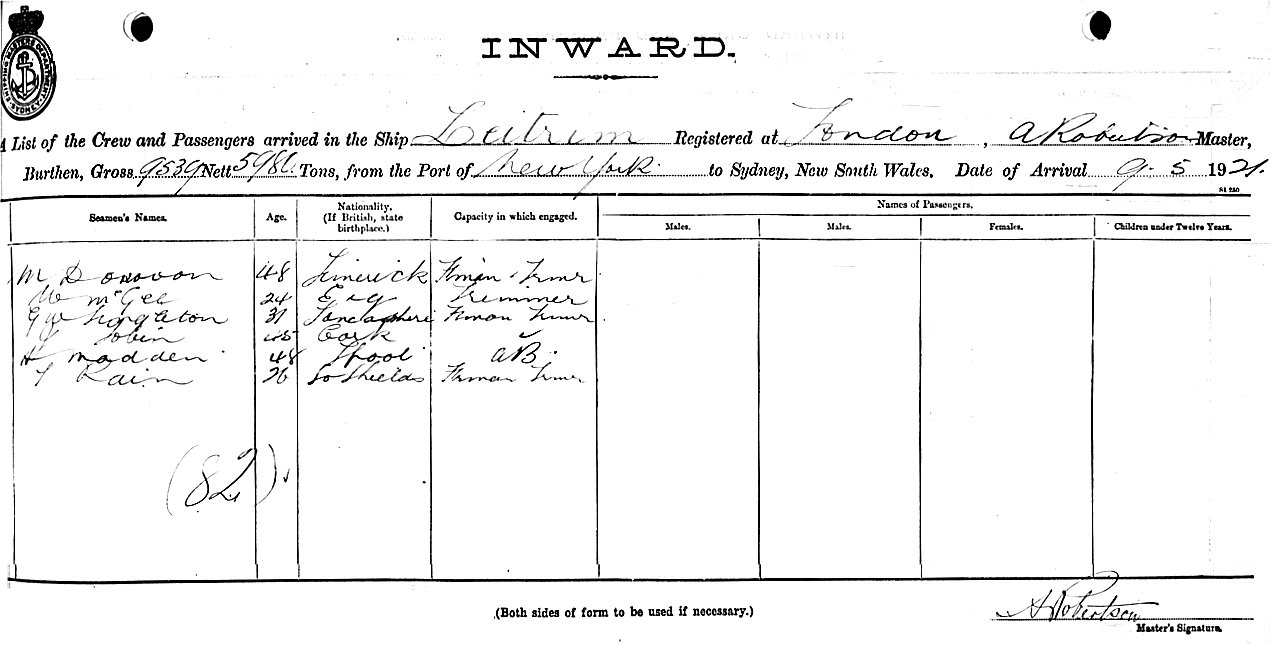 SHIPPING MASTERS DEPARTMENT SYDNEY
INWARD.
A List of the Crew and Passengers arrived in the Ship Leitrim Registered at London, A Robertson Master,
Burthen, Gross 9539 Nett 5986 Tons, from the Port of New York. to Sydney, New South Wales, Date of Arrival 9. 5 1921.
S1 250
Seamen's Names. Age. Nationality. (If British, state birthplace.) Capacity in which engaged. Names of Passengers.
Males. Males. Females. Children under Twelve Years.
M Donovon 48 Limerick Fman Trmr
W McGee 24 Eng Trimmer
G W Singleton 31 Lancashire Fman Trmr
Tobin 45 Cork
H Madden 48 Lpool AB.
T Rain 26 So Shields Fman Trmr
(82)
(Both sides of form to be used if necessary.)
A Robertson
Master's Signature.